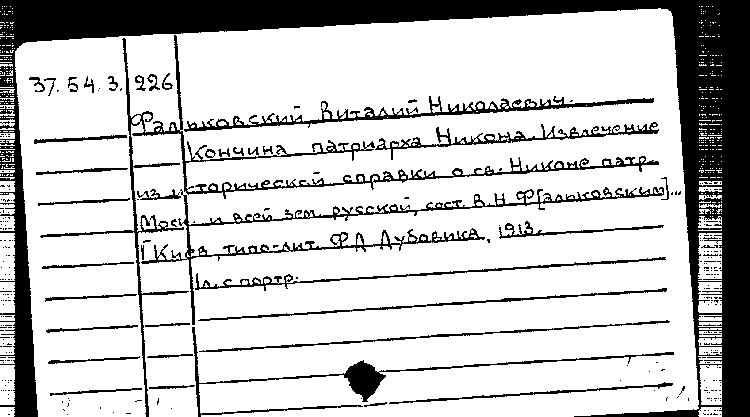 37.54.3. 226
Фальковский, Виталий Николаевич.
Кончина патриарха Никона. Извлечение
из исторической справки о св. Никоне патр.
Моск. и всей зем. русской, сост. В. Н. Ф[альковским]...
[Киев, типо-лит. Ф Д Дубовика, 1913.
1л. с портр.